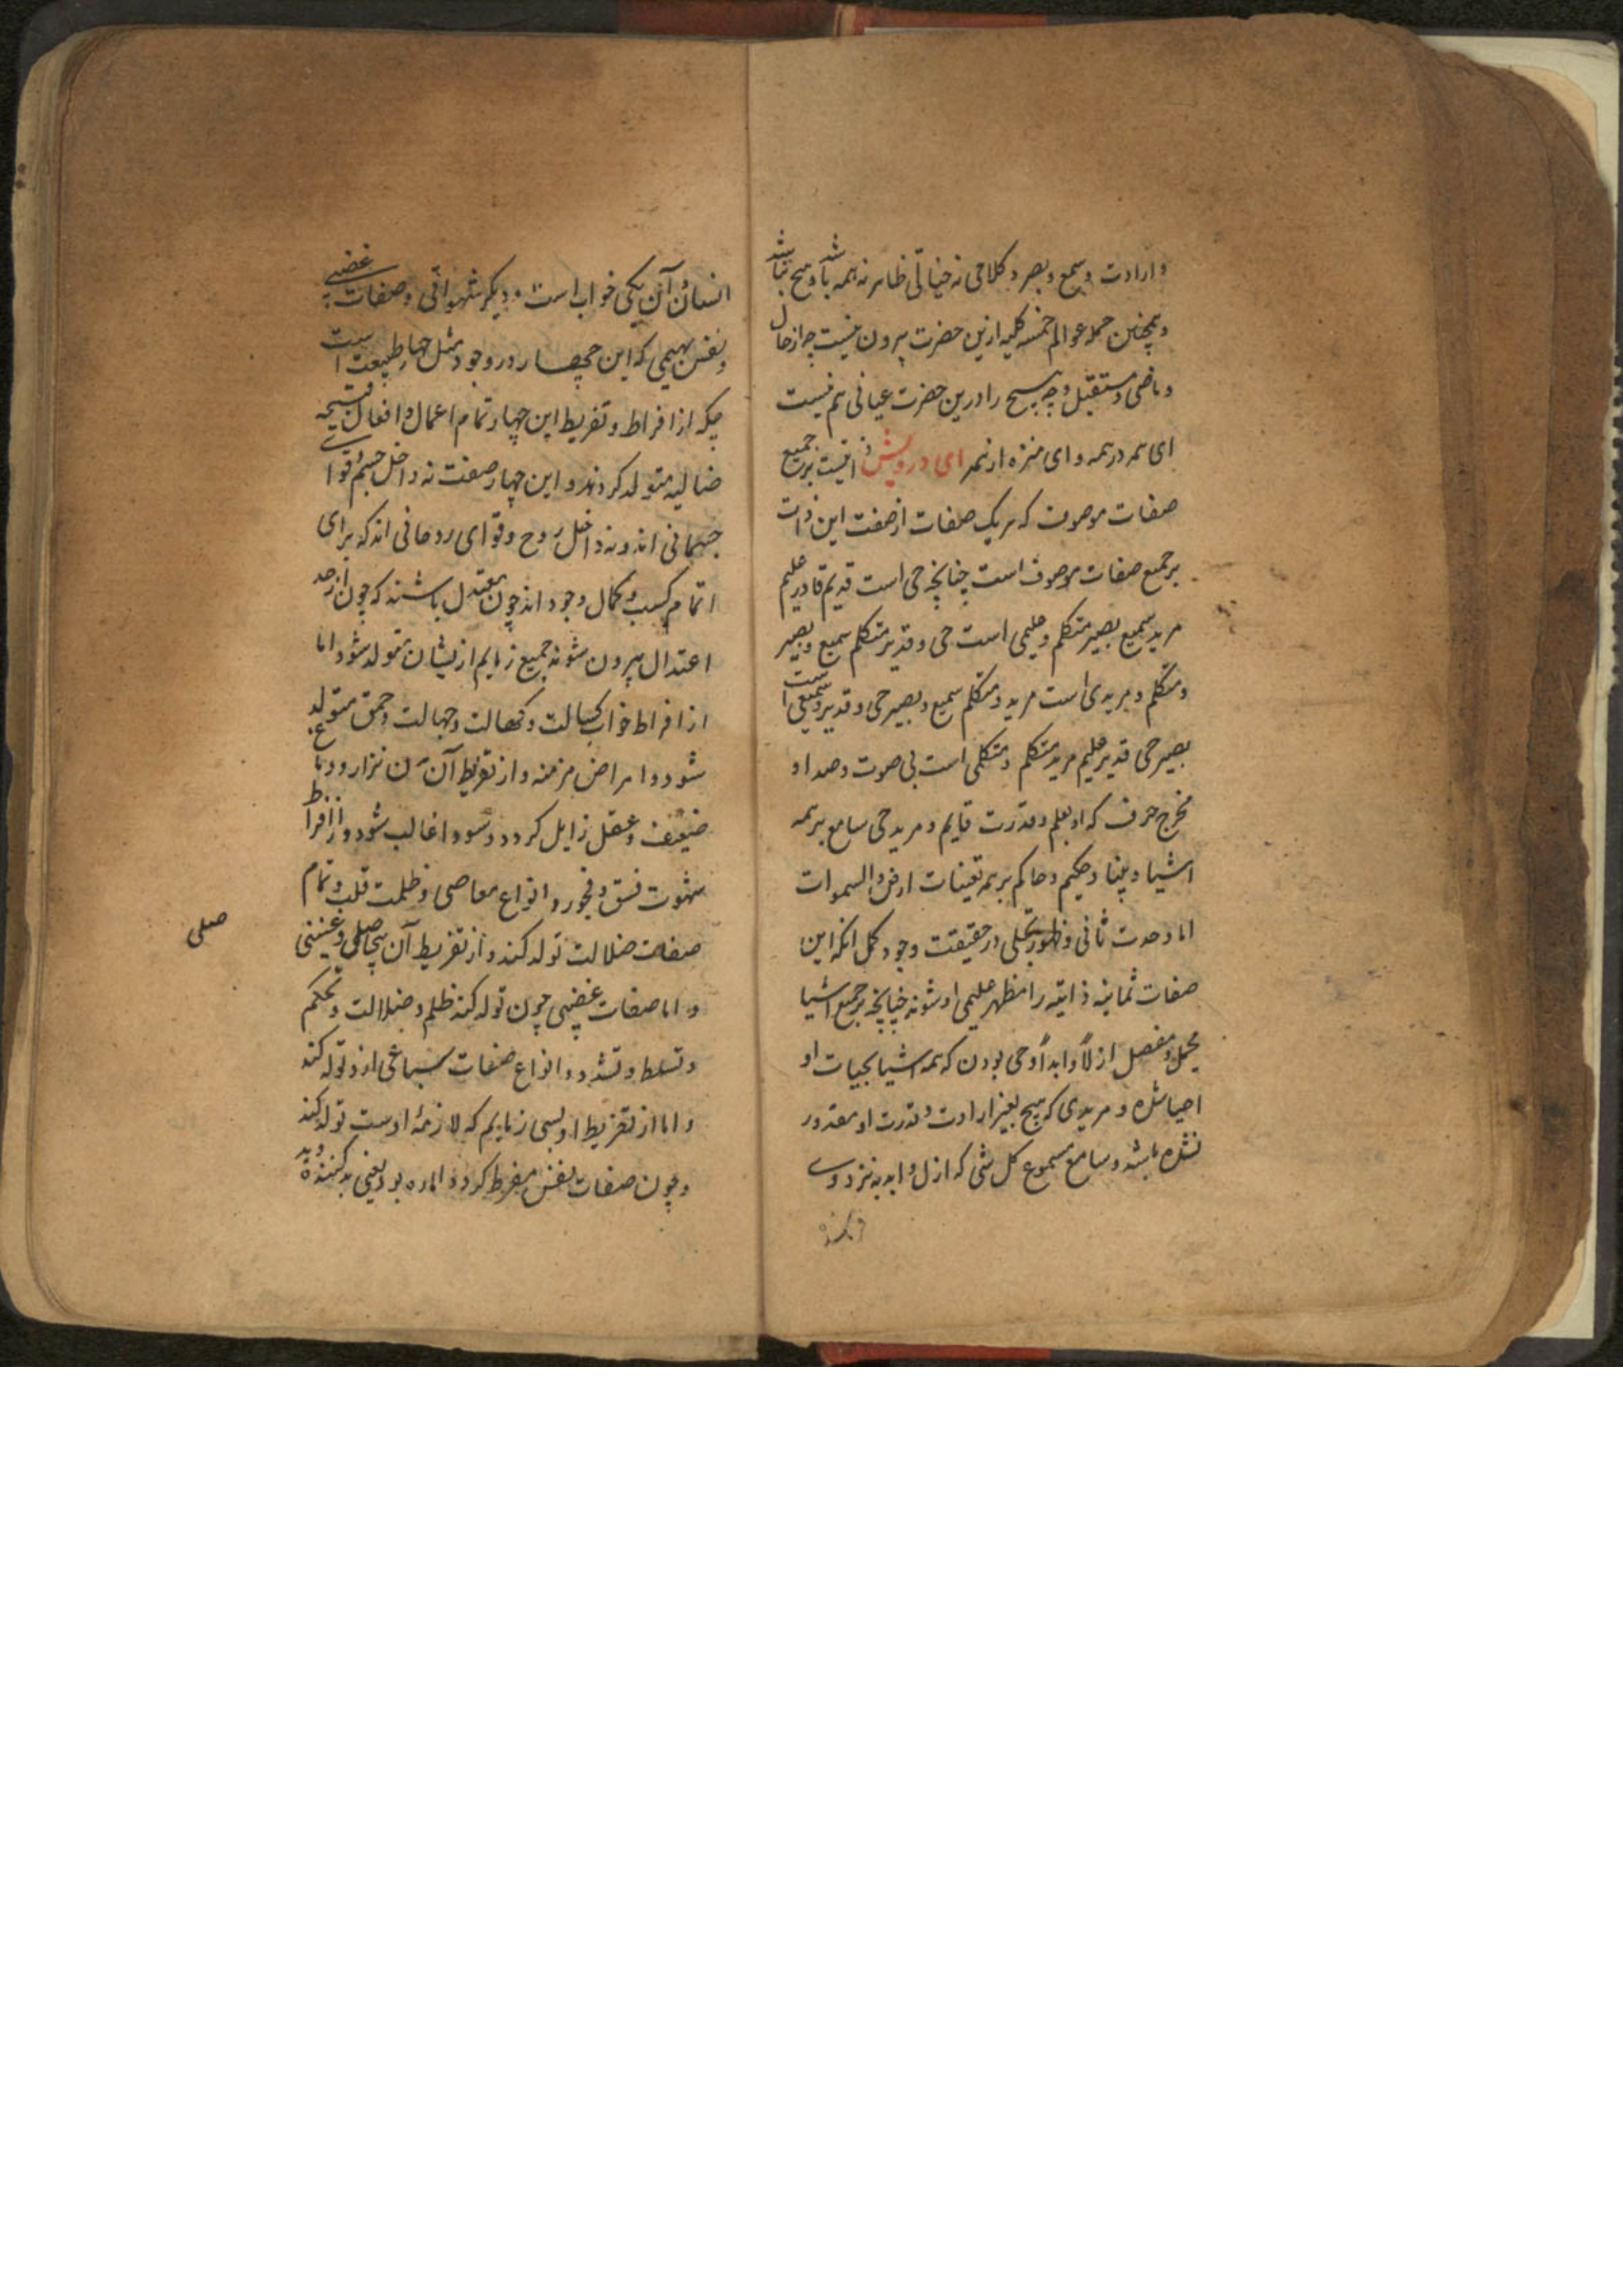 و ارادت و سمع و بصر و کلامی نه خیالی ظاهر نه همه باشد و هیچ نباشد
و همچنین جمله عوالم خمسه کلیه ازین حضرت بیرون نیست چه از حال
و ماضی و مستقبل و چه هیچ را درین حضرت عیانی هم نیست
ای همه در همه و ای منزه از همه ای درویش ذاتیست بر جمیع
صفات موصوف که هر یک صفات از صفت این ذات
بر جمیع صفات موصوف است چنانچه حی است قدیم قادر علیم
مرید سمیع بصیر متکلم و علیمی است حی و قدیر متکلم سمیع و بصیر
و متکلم و مریدی است مرید و متکلم سمیع و بصیر حی و قدیر و سمیعی است
بصیر حی قدیر علیم مرید متکلم و متکلمی است بی صوت و صدا و
مخرج حرف که او بعلم و قدرت قایم و مرید حی سامع بر همه
اشیا و بینا و حکیم و حاکم بر همه تعینات ارض والسموات
اما وحدت ثانی و ظهور تجلی در حقیقت وجود کمل آنکه این
صفات ثمانیه ذاتیه را مظهر علیمی او شوند چنانچه بر جمیع اشیا
مجمل و مفصل ازلاً و ابداً و حی بودن که همه اشیا بحیات او
احیا شده و مریدی که هیچ بغیر ارادت و قدرت او مقدور
نشده باشد و سامع مسموع کل شی که ازل و ابد به نزد وی
انسان آن یکی خواب است و دیگر شهوانی و صفات غضبی
و نفس بهیمی که این هر چهار در وجود مثل چهار طبیعت است
چه که از افراط و تفریط این چهار تمام اعمال و افعال قبیحه
ضالیه متولد کردند و این چهار صفت نه داخل جسم و قوای
جسمانی اند و نه داخل روح و قوای روحانی اند که برای
اتمام کسب و کمال وجود اند چون معتدل باشند که چون از حد
اعتدال بیرون شوند جمیع زمایم ازیشان متولد شود اما
از افراط خواب کسالت و کهالت و جهالت و حمق متولد
شود و امراض مزمنه و از تفریط آن تن نزار و دماغ
ضعیف و عقل زایل کردد و سودا غالب شود و از افراط
شهوت فسق و فجور و انواع معاصی و ظلمت قلب و تمام
صفات ضلالت تولد کند و از تفریط آن بیحاصلی و عنینی
صلی
و اما صفات غضبی چون تولد کند ظلم و ضلالت و تحکم
و تسلط و تشدد و انواع صفات سباعی ازو تولد کند
و اما از تفریط او بسی زمایم که لازمۀ اوست تولد کند
و چون صفات نفس مفرط کردد اماره بود یعنی بد کننده